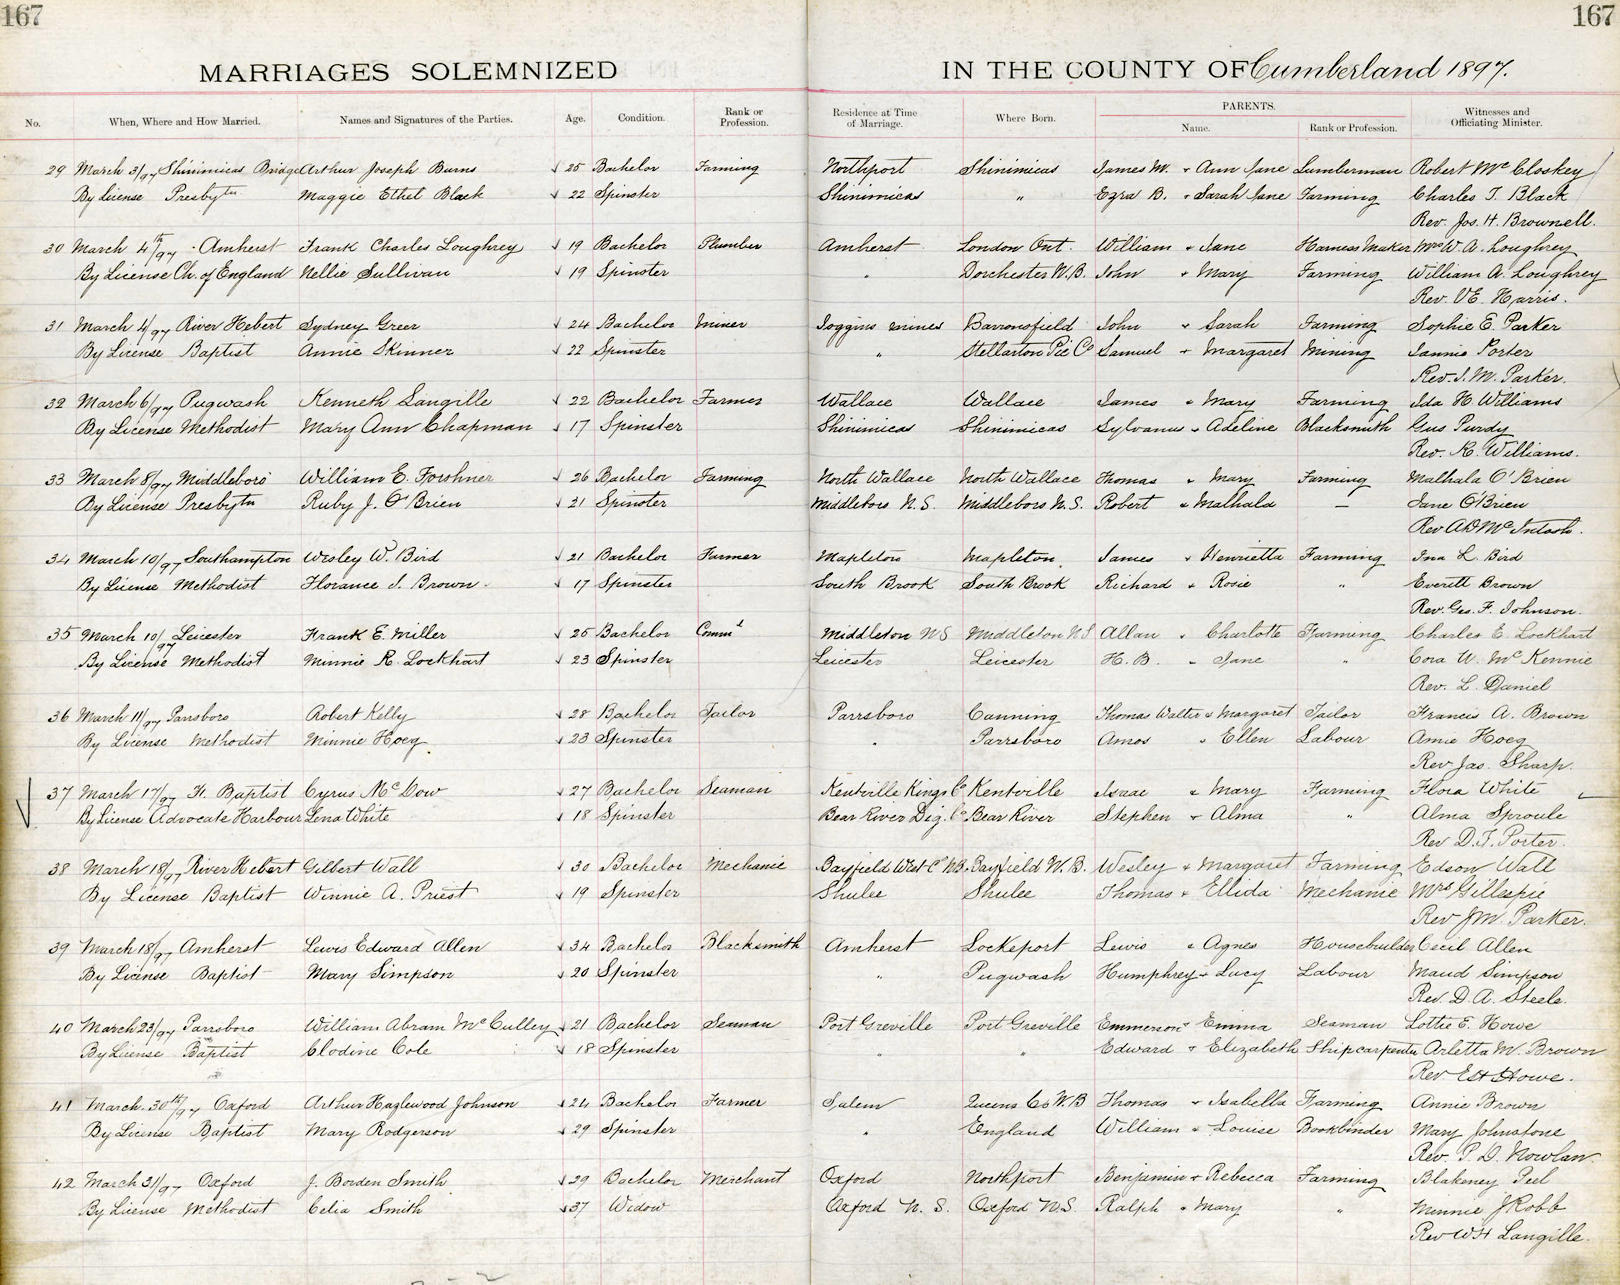 167 167
MARRIAGES SOLEMNIZED IN THE COUNTY OF Cumberland 1897.
No. When, Where and How Married. Names and Signatures of the Parties. Age. Condition. Rank or Profession. Residence at Time of Marriage. Where Born. PARENTS. Name. Rank or Profession. Witnesses and Officiating Minister.
29 March 3/97 Shinimicas Bridge Arthur Joseph Burns 25 Bachelor Farming Northport Shinimicas James W. + Ann Jane Lumberman Robert McCloskey
By License Presbytn Maggie Ethel Black 22 Spinster Shinimicas " Ezra B. + Sarah Jane Farming Charles T. Black
Rev. Jos. H. Brownell.
30 March 4th/97 Amherst Frank Charles Loughrey 19 Bachelor Plumber Amherst London Ont. William + Jane Harness Maker Mrs W. A. Loughrey
By License Ch. of England Nellie Sullivan 19 Spinster " Dorchester N.B. John + Mary Farming William A. Loughrey
Rev. V E. Harris.
31 March 4/97 River Hebert Sydney Greer 24 Bachelor Miner Joggins Mines Barronsfield John + Sarah Farming Sophie E. Parker
By License Baptist Annie Skinner 22 Spinster " Stellarton Pic Co Samuel + Margaret Mining Jannie Porter
Rev. J. M. Parker.
32 March 6/97 Pugwash Kenneth Langille 22 Bachelor Farmer Wallace Wallace James + Mary Farming Ida H Williams
By License Methodist Mary Ann Chapman 17 Spinster Shinimicas Shinimicas Sylvanus + Adeline Blacksmith Gus Purdy
Rev. R. Williams.
33 March 8/97 Middleboro William E. Forshner 26 Bachelor Farming North Wallace North Wallace Thomas + Mary Farming Malhala O'Brien
By License Presbytn Ruby J. O'Brien 21 Spinster Middleboro N.S. Middleboro N.S. Robert + Malhala — Jane O'Brien
Rev A D McIntosh.
34 March 10/97 Southampton Wesley W. Bird 21 Bachelor Farmer Mapleton Mapleton James + Henrietta Farming Ina L. Bird
By License Methodist Florance J. Brown 17 Spinster South Brook South Brook Richard + Rosie " Everett Brown
Rev. Geo. F. Johnson.
35 March 10/97 Leicester Frank E. Miller 25 Bachelor Commt Middleton NS Middleton NS Allan + Charlotte Farming Charles E. Lockhart
By License Methodist Minnie R. Lockhart 23 Spinster Leicester Leicester H. B. + Jane " Cora W. McKennie
Rev. L. Daniel
36 March 11/97 Parrsboro Robert Kelly 28 Bachelor Tailor Parrsboro Canning Thomas Walter + Margaret Tailor Francis A. Brown
By License Methodist Minnie Hoeg 23 Spinster " Parrsboro Amos + Ellen Labour Amie Hoeg
Rev Jas. Sharp.
37 March 17/97 F. Baptist Cyrus McDow 27 Bachelor Seaman Kentville Kings Co Kentville Isaac + Mary Farming Flora White
By License Advocate Harbour Lena White 18 Spinster Bear River Dig. Co Bear River Stephen + Alma " Alma Sproule
Rev D. F. Porter.
38 March 18/97 River Hebert Gilbert Wall 30 Bachelor Mechanic Bayfield West Co NB. Bayfield N.B. Wesley + Margaret Farming Edson Wall
By License Baptist Winnie A. Priest 19 Spinster Shulee Shulee Thomas + Ellida Mechanic Mrs Gillespie
Rev J M. Parker.
39 March 18/97 Amherst Lewis Edward Allen 34 Bachelor Blacksmith Amherst Lockeport Lewis + Agnes Housebuilder Cecil Allen
By License Baptist Mary Simpson 20 Spinster " Pugwash Humphrey + Lucy Labour Maud Simpson
Rev. D. A. Steele.
40 March 23/97 Parrsboro William Abram McCulley 21 Bachelor Seaman Port Greville Port Greville Emmerson + Emma Seaman Lottie E. Howe
By License Baptist Clodine Cole 18 Spinster " " Edward + Elizabeth Shipcarpenter Arletta M. Brown
Rev. E H Howe.
41 March 30th/97 Oxford Arthur Hazlewood Johnson 24 Bachelor Farmer Salem Queens Co N.B Thomas + Isabella Farming Annie Brown
By License Baptist Mary Rodgerson 29 Spinster " England William + Louise Bookbinder Mary Johnstone
Rev. P. D. Nowlan.
42 March 31/97 Oxford J. Borden Smith 29 Bachelor Merchant Oxford Northport Benjamin + Rebecca Farming Blakeney Peel
By License Methodist Celia Smith 37 Widow Oxford N. S. Oxford N.S. Ralph + Mary " Minnie J Robb
Rev W H Langille.